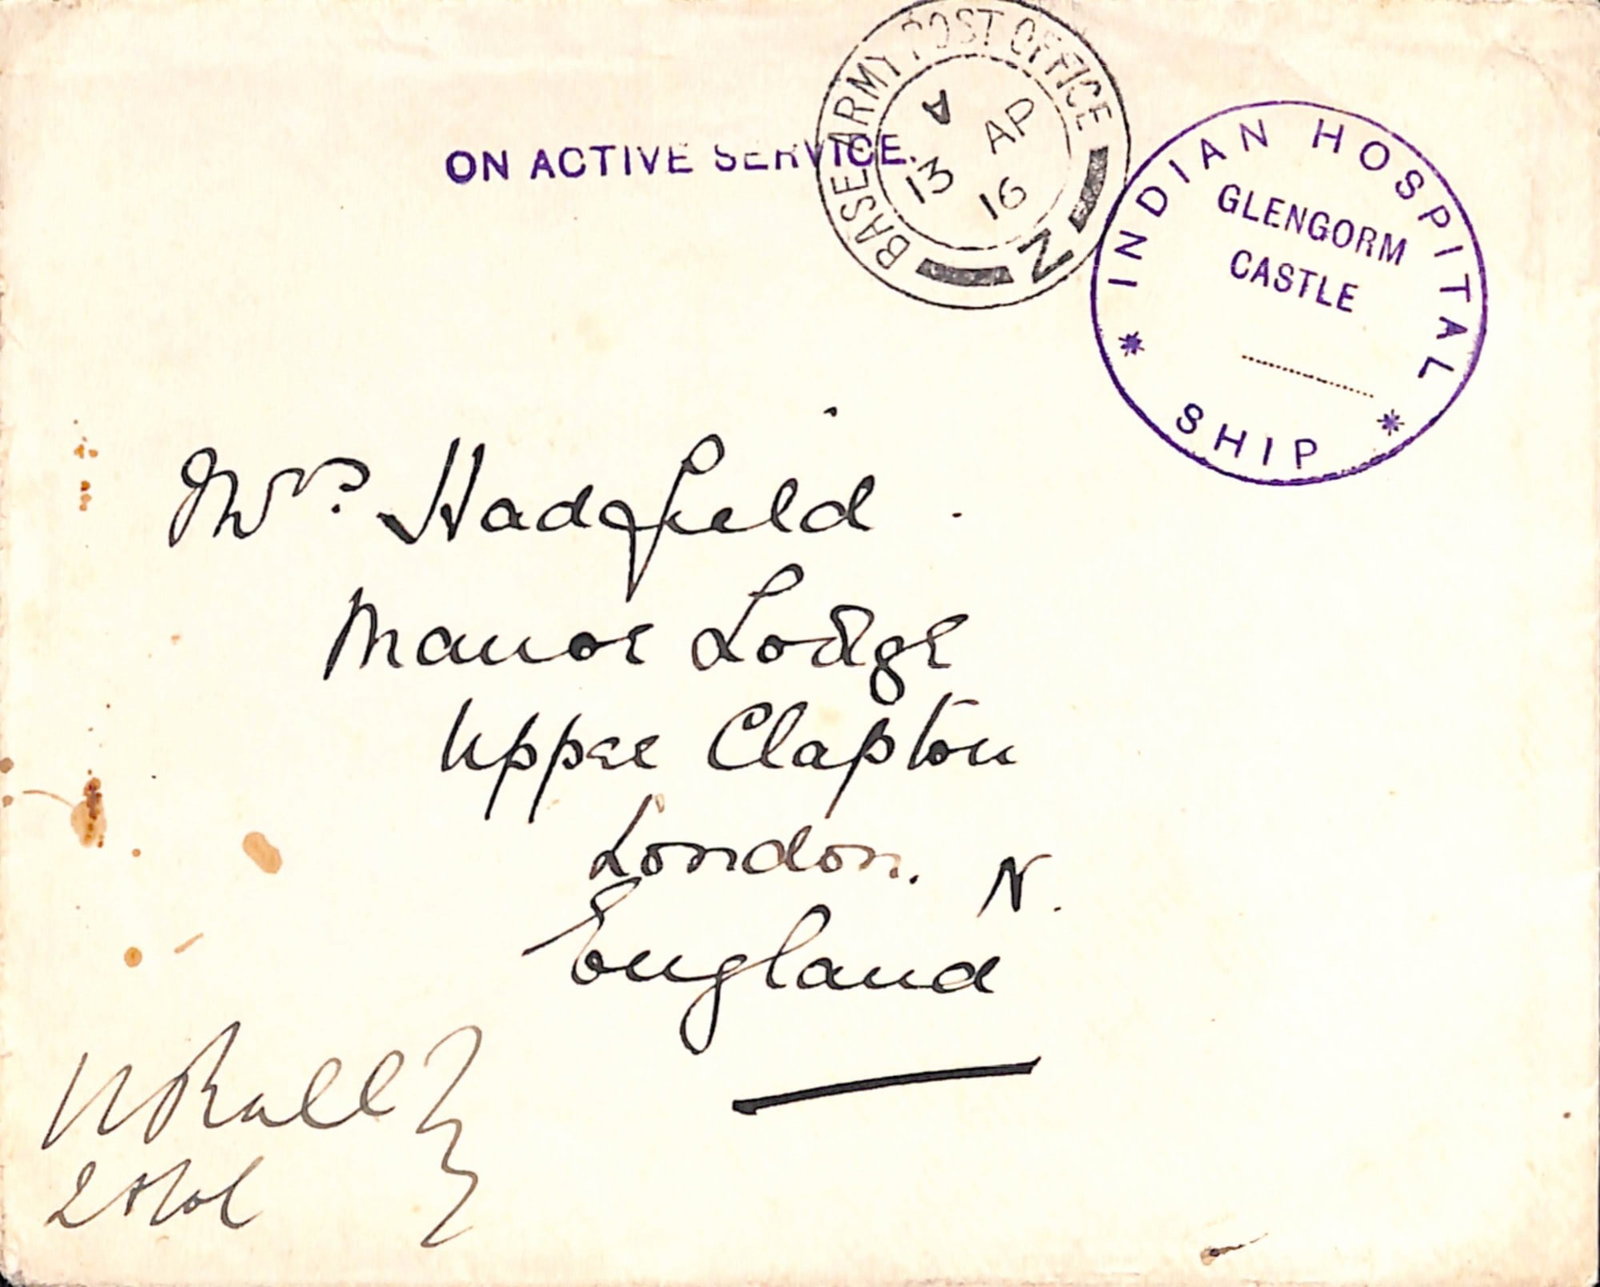 ON ACTIVE SERVICE.
BASE ARMY POST OFFICE Z
A
13 AP
16
INDIAN HOSPITAL
GLENGORM
CASTLE
* SHIP *
Mrs Hadfield.
Manor Lodge
Upper Clapton
London. N.
England